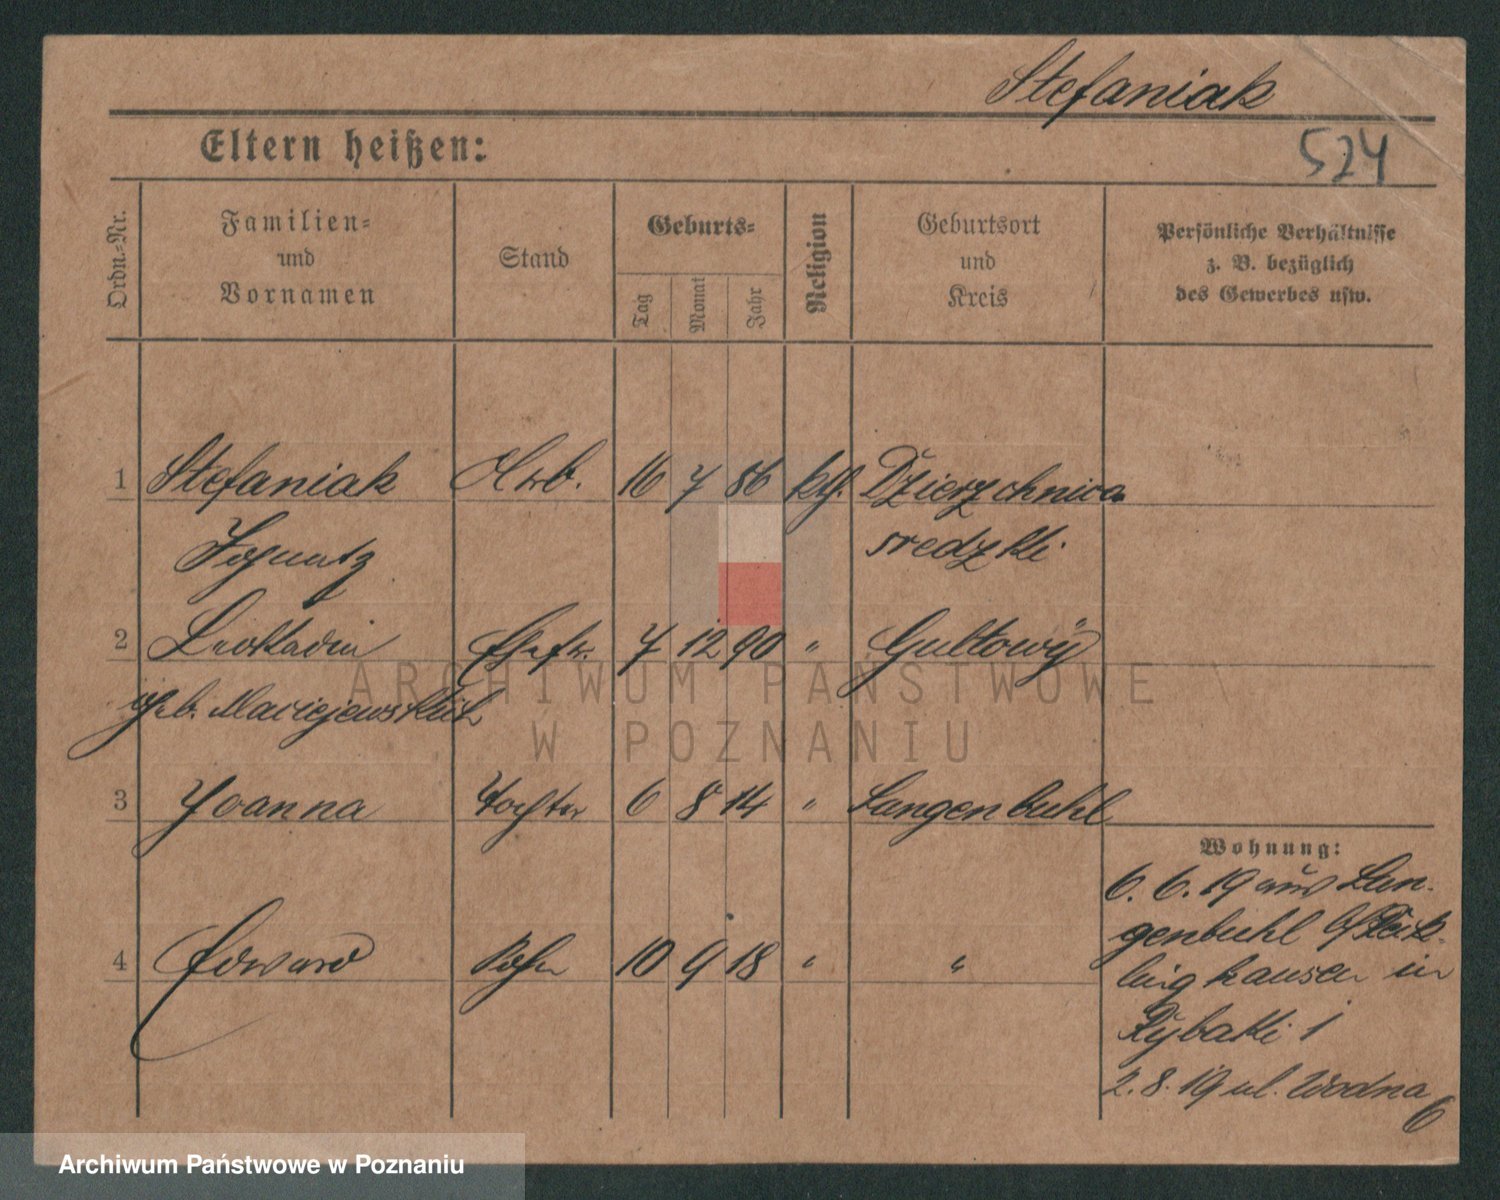 Stefaniak
Eltern heißen:
524
Ordn.-Nr.
Familien-
und
Vornamen
Stand
Geburts-
Tag
Monat
Jahr
Religion
Geburtsort
und
Kreis
Persönliche Verhältnisse
z. B. bezüglich
des Gewerbes usw.
1 Stefaniak Arb. 16 7 86 kth. Dzierzchnica
Ignatz sredzki
2 Leokadia Ehefr. 7 12 90 " Gultowy
geb. Maciejewski
3 Joanna Tochter 6 8 14 " Langenbuhl
Wohnung:
6. 6. 19 aus Lan-
genbuhl
4 Edward Sohn 10 9 18 " "
linghausen in
Rybaki 1
2. 8. 19 ul. Wodna
6
ARCHIWUM PAŃSTWOWE
W POZNANIU
Archiwum Państwowe w Poznaniu